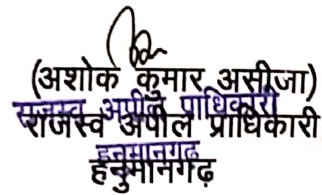 (अशोक कुमार असीजा)
राजस्व अपील प्राधिकारी
राजस्व अपील प्राधिकारी
हनुमानगढ़
हनुमानगढ़